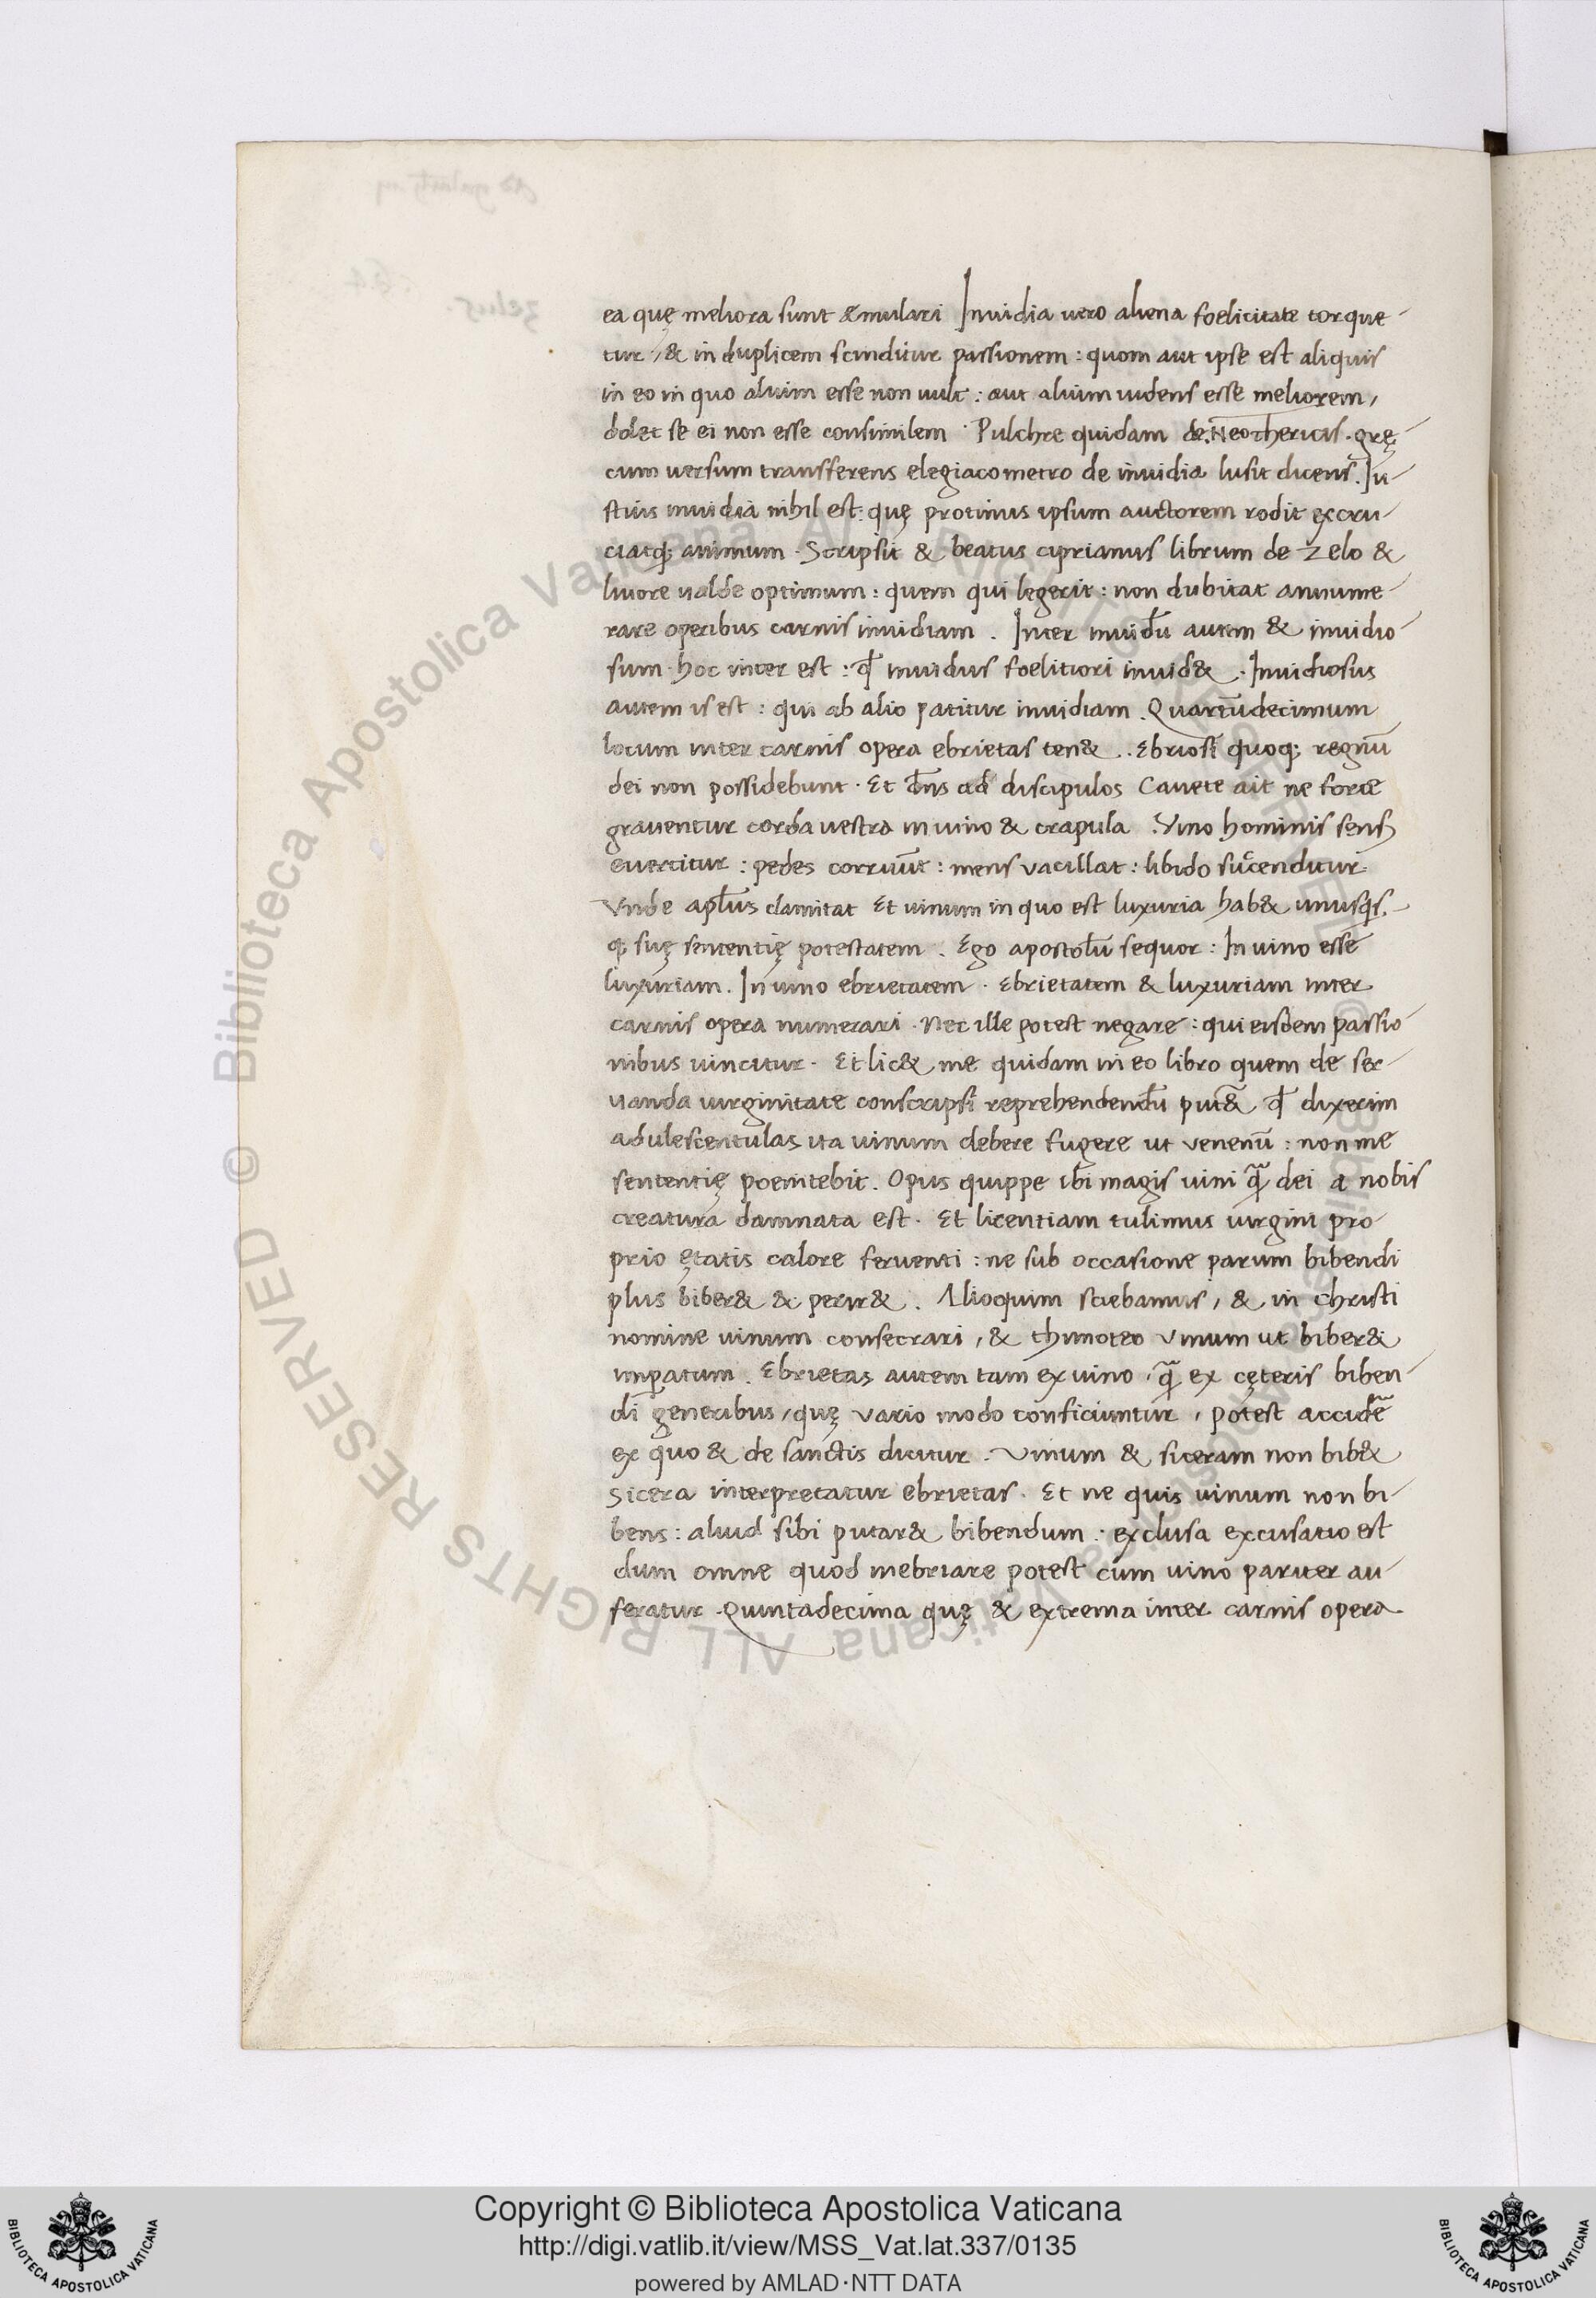 ea quę meliora sunt æmulari Inuidia uero aliena foelicitate torque-
tur, & in duplicem scinditur passionem : quom aut ipse est aliquis
in eo in quo alium esse non uult : aut alium uidens esse meliorem,
dolet se ei non esse consimilem · Pulchre quidam de Neothericis · grę-
cum uersum transferens elegiaco metro de inuidia lusit dicens . Iu-
stius inuidia nihil est : quę protinus ipsum auctorem rodit excru-
ciatq; animum · Scripsit & beatus ciprianus librum de Zelo &
liuore ualde optimum : quem qui legerit : non dubitat annume-
rare operibus carnis inuidiam . Inter inuidū autem & inuidio-
sum · hoc inter est : qđ inuidus foelitiori inuid& · Inuidiosus
autem is est : qui ab alio patitur inuidiam . Quartūdecimum
locum inter carnis opera ebrietas ten& . Ebriosi quoq; regnū
dei non possidebunt · Et dn̄s ad discipulos Cauete ait ne forte
grauentur corda uestra in uino & crapula . Vino hominis sensꝰ
euertitur : pedes corruūt : mens vacillat : libido succenditur.
Vnde apl̄us clamitat Et uinum in quo est luxuria hab& unusqs-
q; suę sententię potestatem . Ego apostolū sequor : In uino esse
luxuriam . In uino ebrietatem · Ebrietatem & luxuriam inter
carnis opera numerari · Nec ille potest negare : qui eisdem passio-
nibus uincitur · Et lic& me quidam in eo libro quem de ser-
uanda uirginitate conscripsi reprehendendū put& qđ dixerim
adulescentulas ita uinum debere fugere ut venenū : non me
sententię poenitebit . Opus quippe ibi magis uini q̄ dei a nobis
creatura damnata est · Et licentiam tulimus uirgini pro-
prio ętatis calore feruenti : ne sub occasione parum bibendi
plus biber& & perir& . Alioquim sciebamus, & in christi
nomine uinum consecrari, & thimoteo Vinum ut biber&
imꝑatum . Ebrietas autem tam ex uino, q̄ ex cęteris biben-
di generibus, quę vario modo conficiuntur, potest accidē
ex quo & de sanctis dicitur . Vinum & siceram non bib&
Sicera interpretatur ebrietas · Et ne quis uinum non bi-
bens : aliud sibi putar& bibendum · exclusa excusatio est
dum omne quod inebriare potest cum uino pariter au-
feratur . Quintadecima quę & extrema inter carnis opera
Copyright © Biblioteca Apostolica Vaticana
http://digi.vatlib.it/view/MSS_Vat.lat.337/0135
powered by AMLAD·NTT DATA